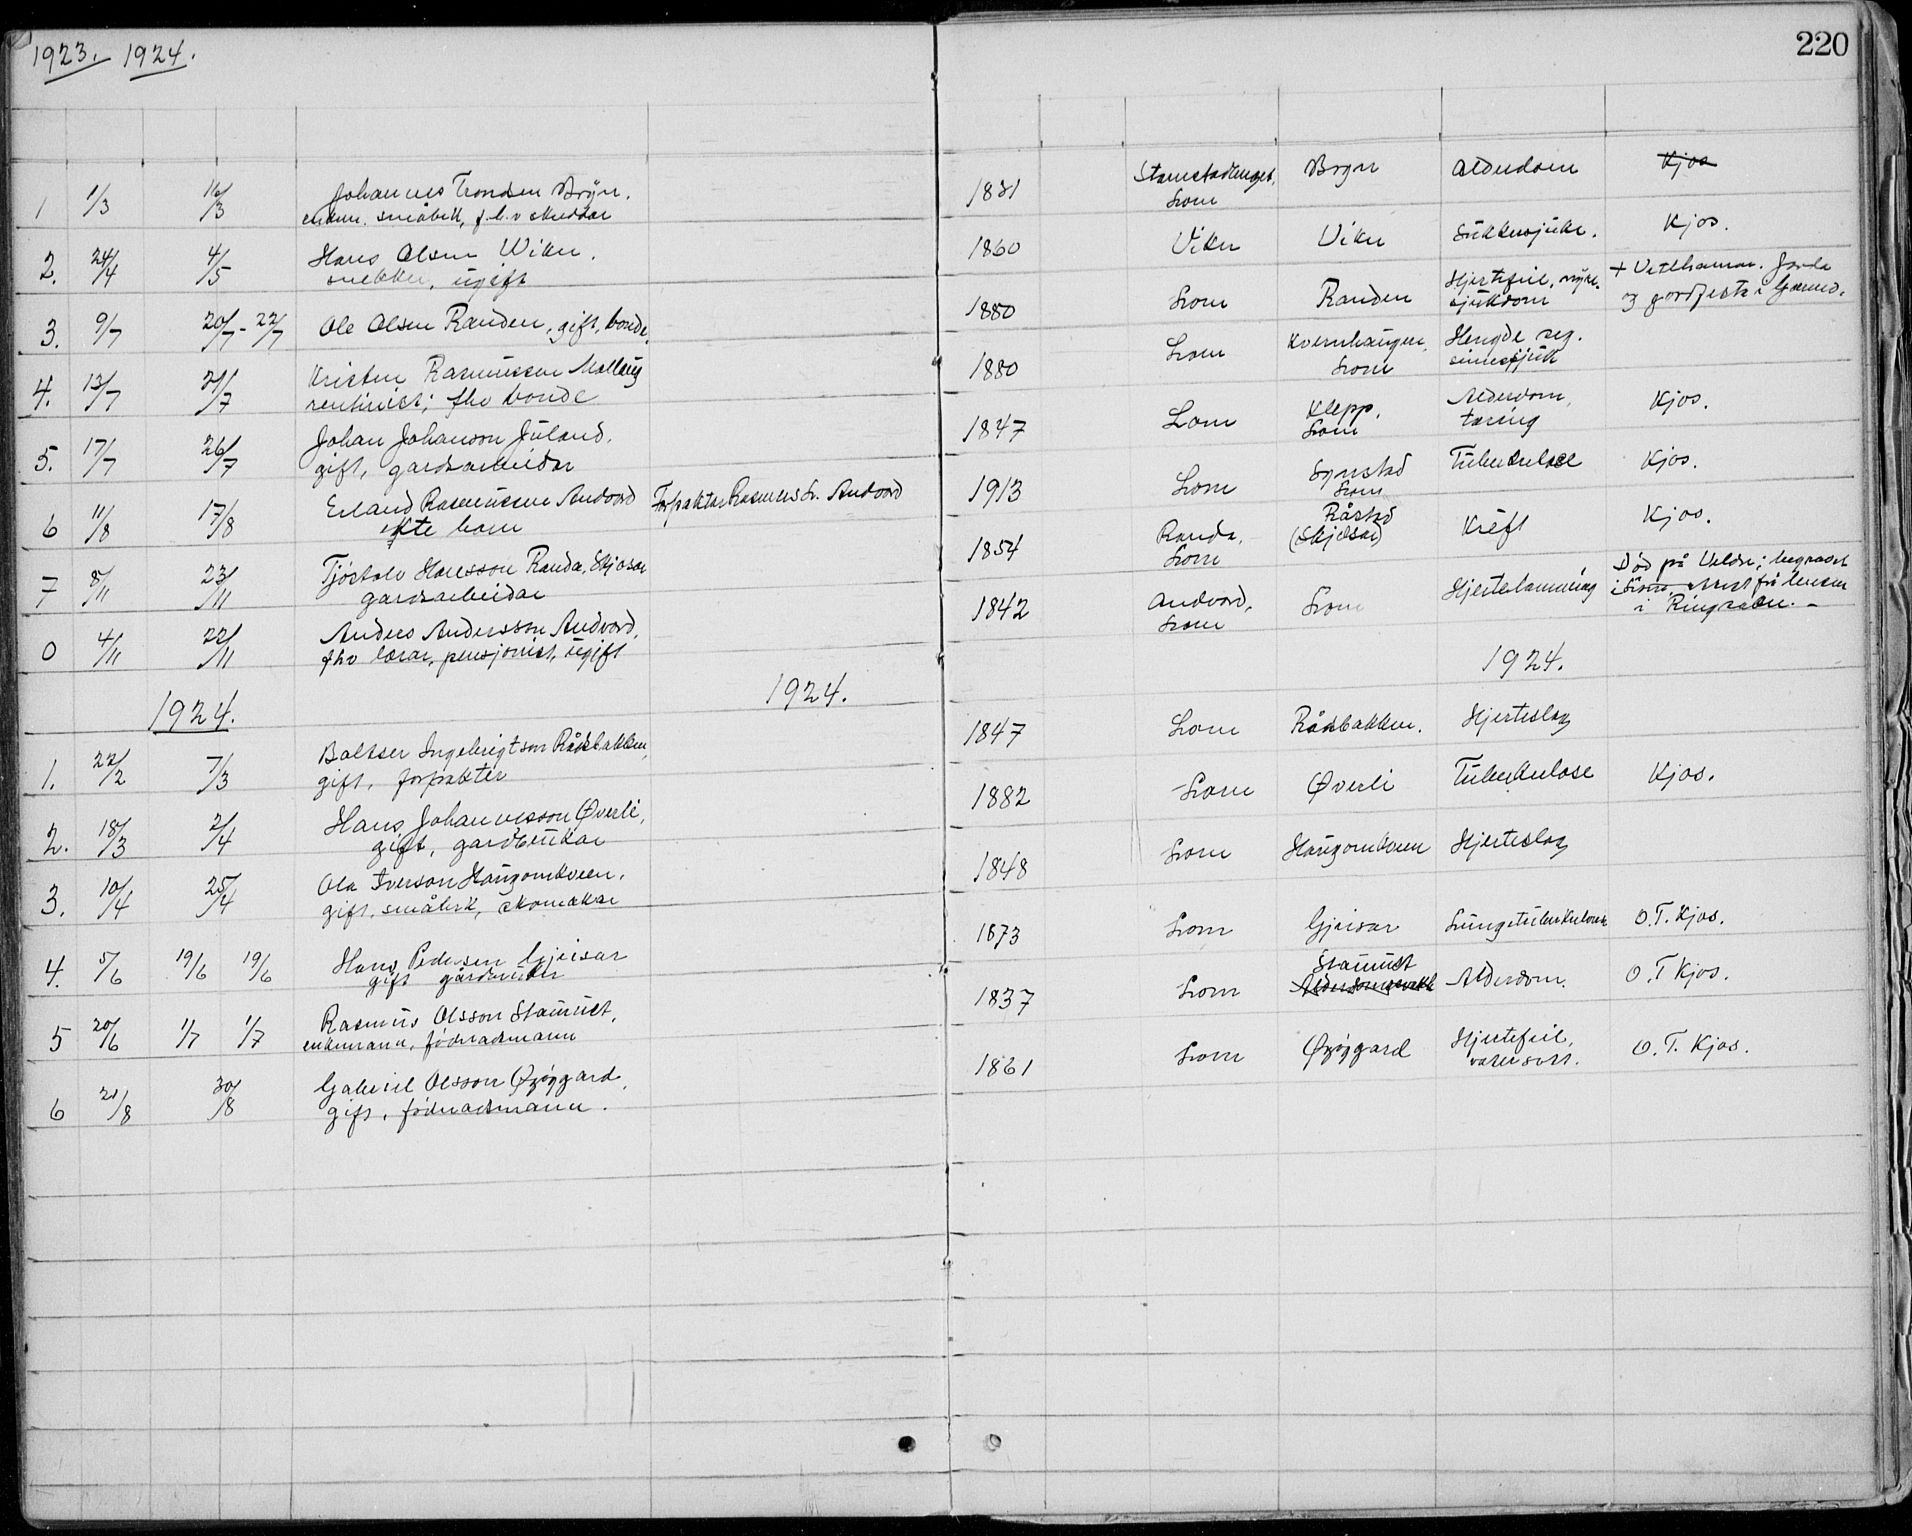 1923. 1924.
220
1 1/3 16/3 Johannes Trondsen Bryn.
enkem. småbrk, f.h.v skreddar
1831 Lom Bryn Alderdom Kjos
2. 24/4 4/5 Hans Olsen Viken.
snekker, ugift
1860 Viken Viken Sukkersjuke. Kjos.
3. 9/7 20/7 - 22/7 Ole Olsen Randen, gift, bonde.
1880 Lom Randen Hjertefeil, nyre-
sjukdom
4. 13/7 21/7 Kristen Rasmusson
rentinist; fhv bonde
1880 Lom Lom Hengde seg.
sinnssjuk
5. 17/7 26/7 Johan Johanson Juland.
gift, gardsarbeidar
1847 Lom Klepp.
Lom Alderdom,
tæring Kjos.
6 11/8 17/8 Erland Rasmusson Andvord
ekte barn
Forpaktar Rasmus Andvord
1913 Lom Synstad
Lom Tuberkulose Kjos.
7 8/11 23/11 Tjøstolv Hansson Randa,
gardsarbeidar
1854 Randa,
Lom Råstad Kreft Kjos.
0 4/11 22/11 Anders Andersson Andvord,
fhv lærar, pensjonist, ugift
1842 Andvord,
Lom Lom Hjertelamming Død på ; begravet
i Lom
i Ringsaker. -
1924. 1924. 1924.
1. 22/2 7/3 Baltser Ingebrigtson Råsbakken,
gift, forpakter
1847 Lom Råsbakken. Hjerteslag
2. 18/3 2/4 Hans Johannesson Øverli,
gift, gardbrukar
1882 Lom Øverli Tuberkulose Kjos.
3. 10/4 25/4 Ola Iverson Haugomkveen.
gift, småbrk, skomakar
1848 Lom Haugomkveen Hjerteslag
4. 5/6 19/6 19/6 Hans Pedersen Gjeisar
gift gårdbruker
1873 Lom Gjeisar Lungetuberkulose O.T. Kjos.
5 20/6 1/7 1/7 Rasmus Olsson Staurust,
enkemann, føderådsmann
1837 Lom Staurust
Alderdom. O.T Kjos.
6 21/8 30/8 Gabriel Olsson Øygard,
gift, føderådsmann.
1861 Lom Øygard Hjertefeil,
vatersott. O.T. Kjos.